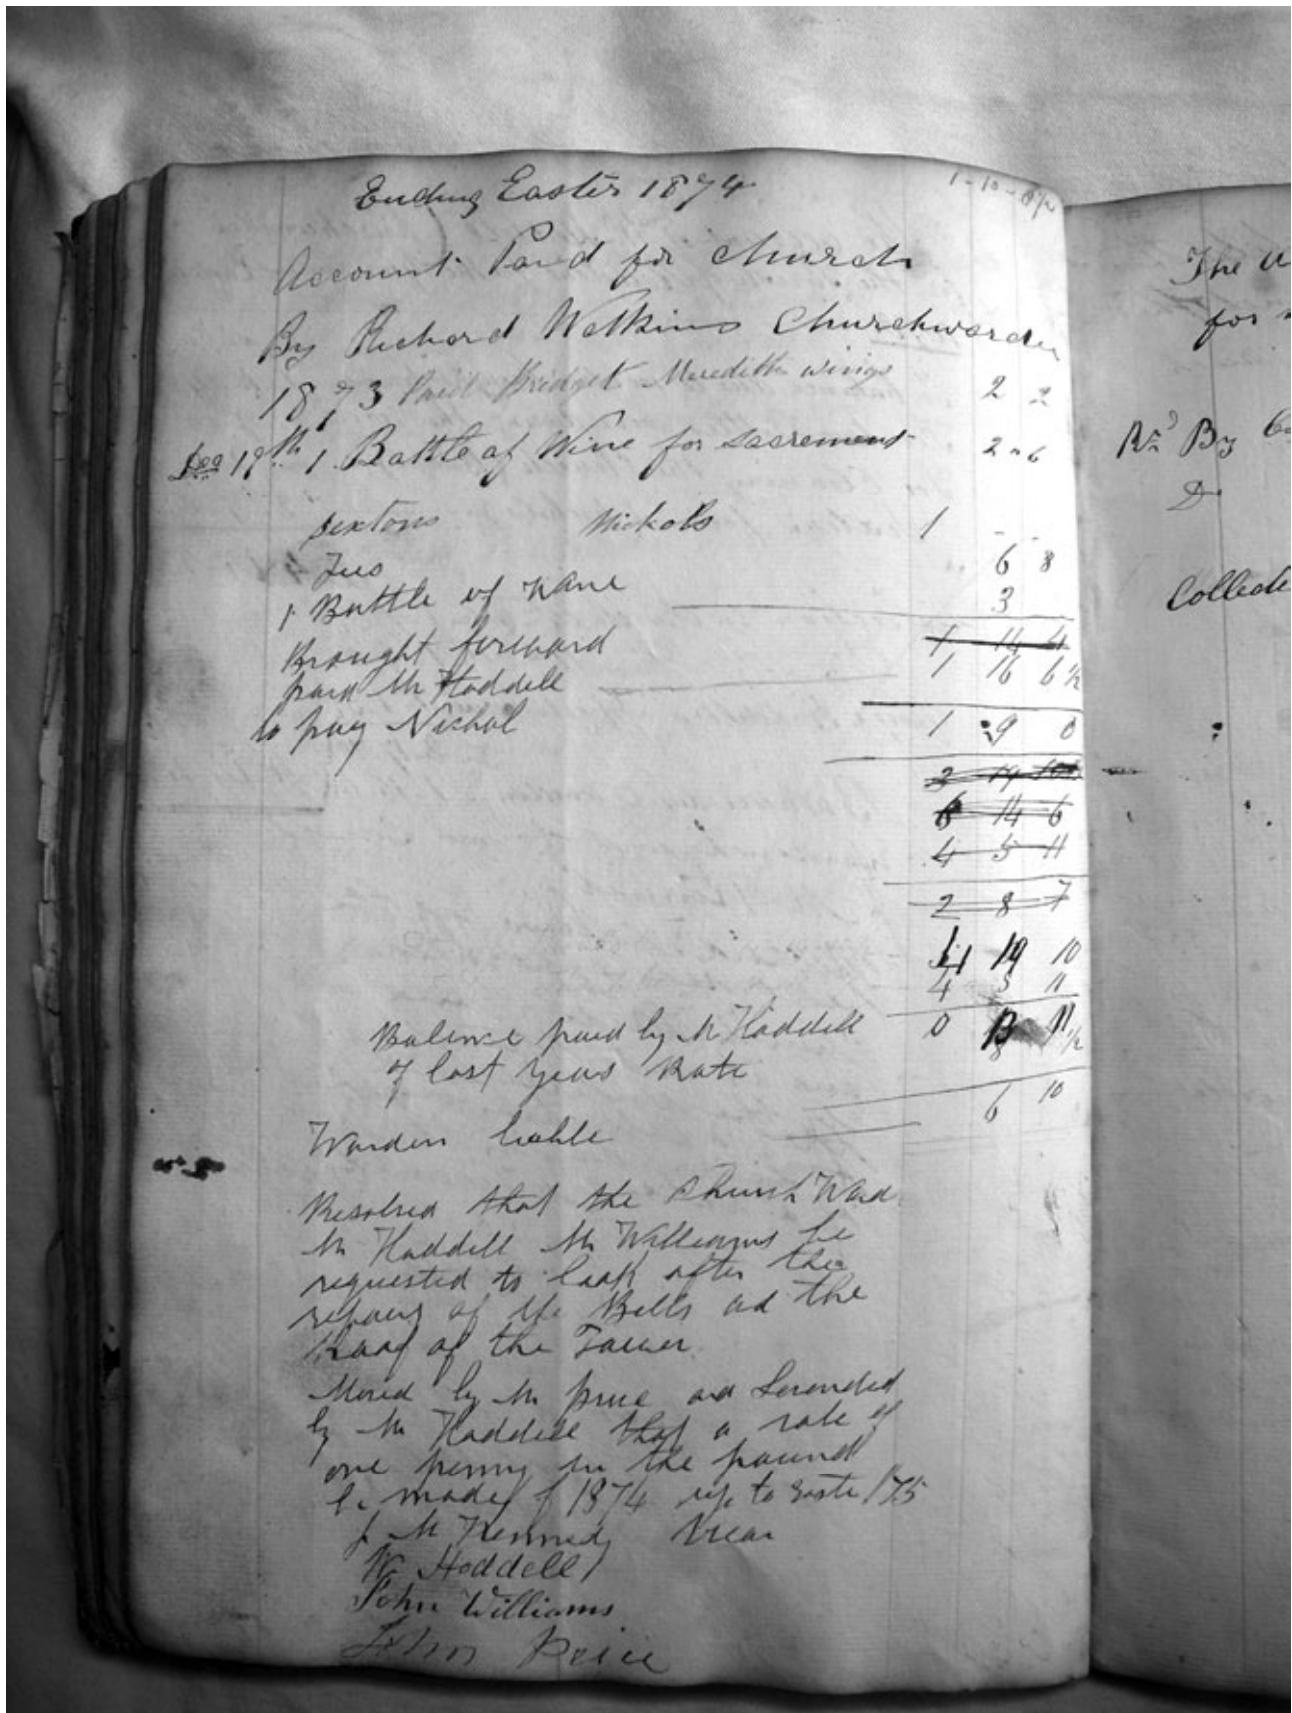 Ending Easter 1874
1-10-8½
Account Paid for Church
By Richard Watkins Churchwarden
1873 Paid Bridget Meredith 2 2
Dec 19th 1 Battle of Wine for Sacrement 2 " 6
Sextons Nickols 1 - -
Fees 6 8
1 Bottle of Wine 3
Brought forward 1 14 4
paid Mr Hoddell 1 16 6½
to pay Nichol 1 9 0
2 19 10
6 14 6
4 5 11
2 8 7
19 10
4 5 11
Balance paid by Mr Hoddell 0 13 11½
of last years Rate
6 10
Warden liable
Resolved that the Church Ward
Mr Hoddell Mr Williams be
requested to look after the
repairs of the Bells ad the
Roof of the Tower
Moved by Mr Price ad Seconded
by Mr Hoddell that a rate of
one penny in the pound
be made f 1874 up to Easte /75
J M Kennedy Vicar
W Hoddell
John Williams
John Price
The
for
By
Do
Collecte